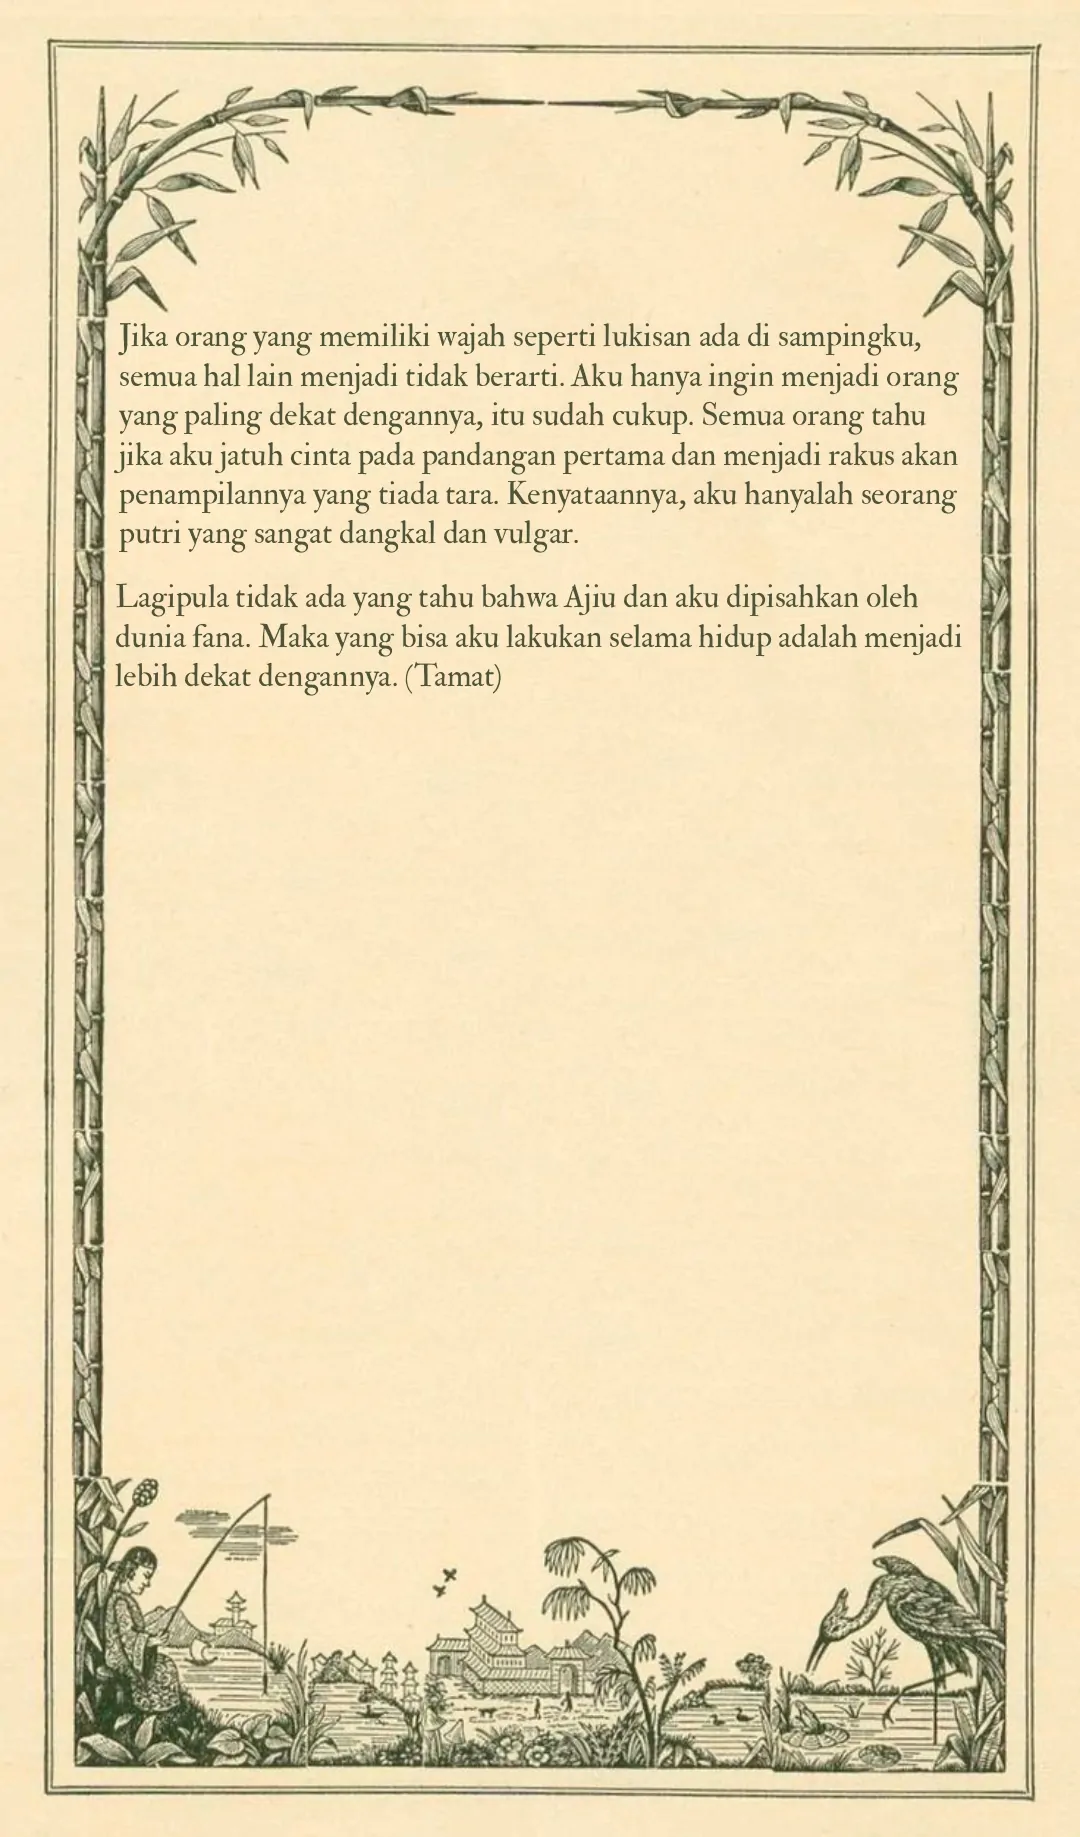 Jika orang yang memiliki wajah seperti lukisan ada di sampingku,
semua hal lain menjadi tidak berarti. Aku hanya ingin menjadi orang
yang paling dekat dengannya, itu sudah cukup. Semua orang tahu
jika aku jatuh cinta pada pandangan pertama dan menjadi rakus akan
penampilannya yang tiada tara. Kenyataannya, aku hanyalah seorang
putri yang sangat dangkal dan vulgar.
Lagipula tidak ada yang tahu bahwa Ajiu dan aku dipisahkan oleh
dunia fana. Maka yang bisa aku lakukan selama hidup adalah menjadi
lebih dekat dengannya. (Tamat)